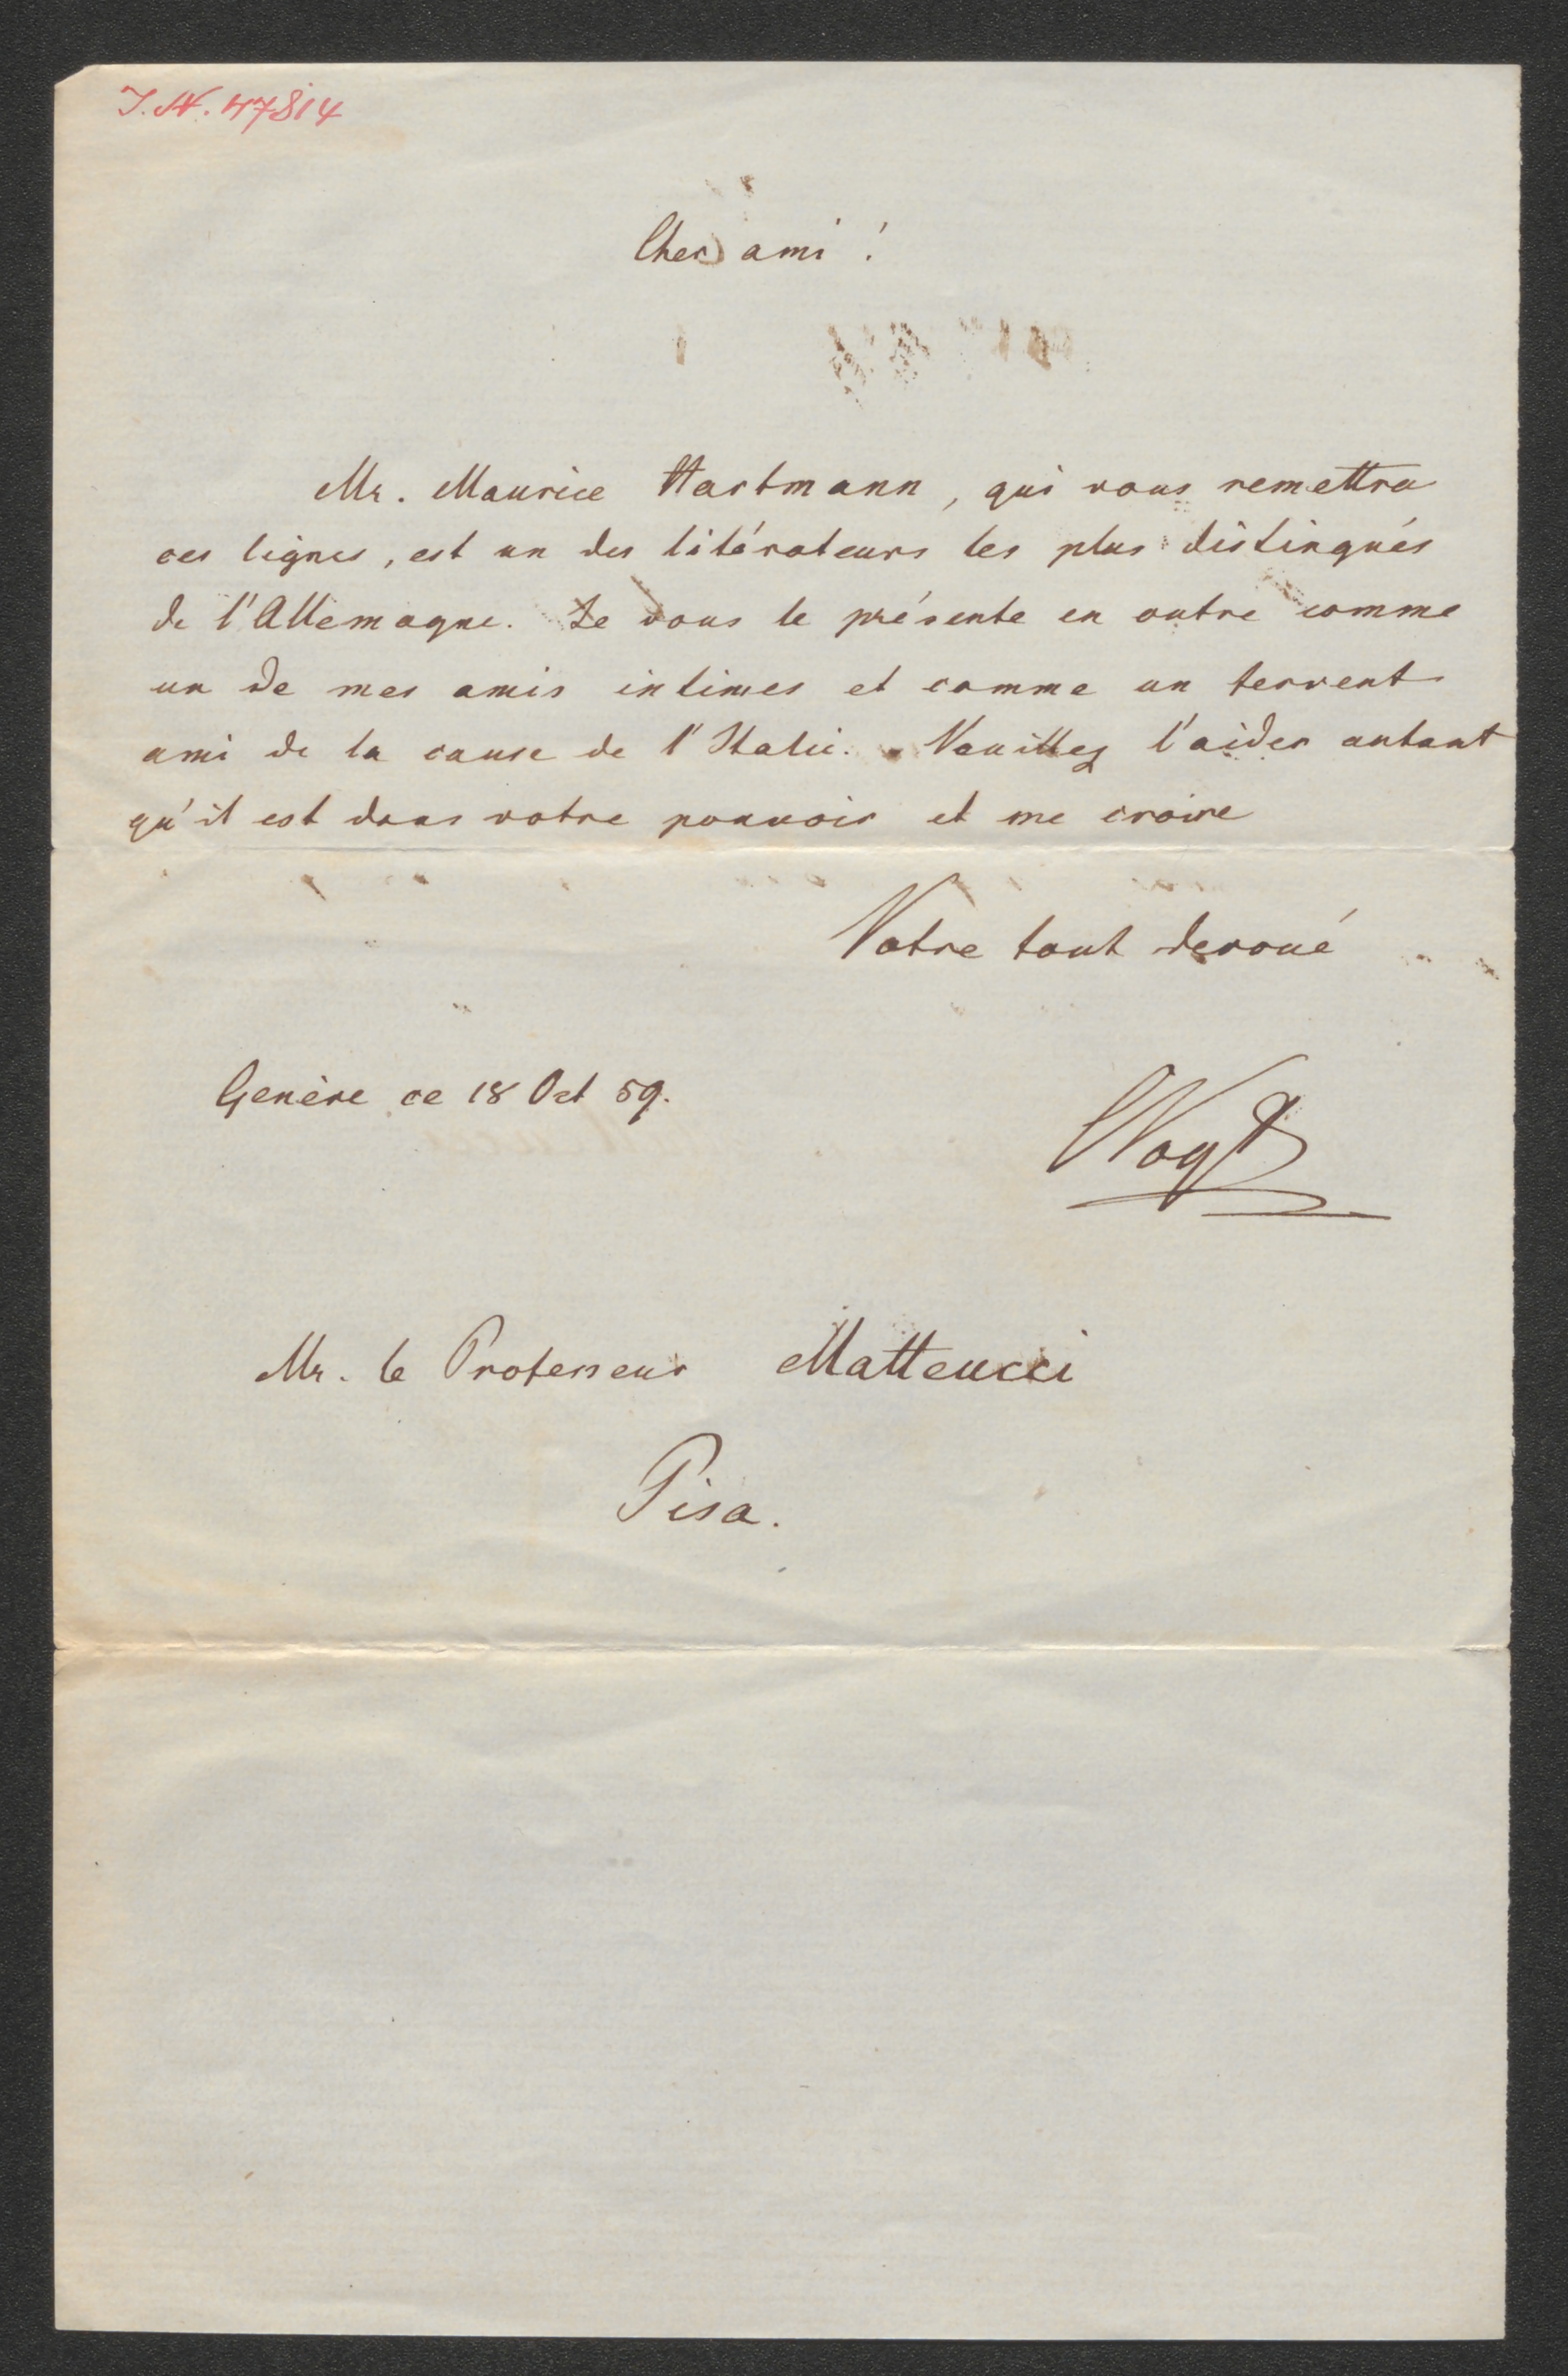 I.N. 47814
Cher ami !
Mr. Maurice Hartmann, qui vous remettra
ces lignes, est un des litérateurs les plus distingués
de l'Allemagne. Je vous le présente en outre comme
un de mes amis intimes et comme un fervent
ami de la cause de l'Italie. Veuillez l'aider autant
qu'il est dans votre pouvoir et me croire
Votre tout devoué
Genève ce 18 Oct 59.
CVogt
Mr. le Professeur Matteucci
Pisa.